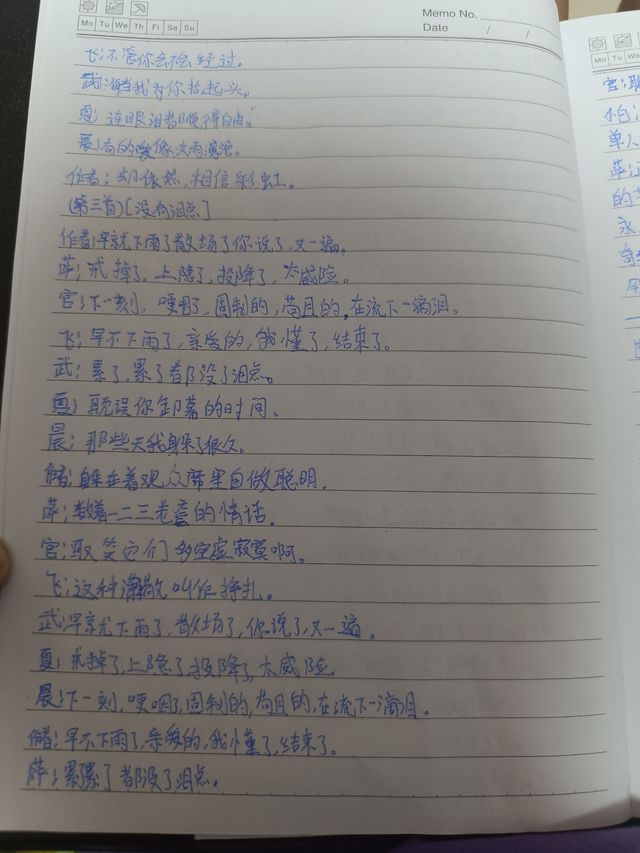 Memo No.
Mo Tu We Th Fi Sa Su
Date / /
飞:不管你会不会经过。
武:海鸥我为你抬起头。
夏:连眼泪都觉得自由。
晨:有的爱像大雨滂沱。
作者:却依然相信彩虹。
(第三首)[没有泪点]
作者:早就下雨了散场了你说了,又一遍,
萨:戒掉了,上隐了,投降了,太威险。
官:下一刻,哽咽了,固制的,苟且的,在流下一滴泪。
飞:早不下雨了,亲爱的,我懂了,结束了。
武:累了,累了都没了泪点。
夏:耽误你卸幕的时间。
晨:那些天我躲了很久。
储:躲在着观众席里自做聪明,
萨:数着一二三老套的情话,
官:取笑它们多空虚寂寞啊。
飞:这种潇散叫作挣扎。
武:早就下雨了,散场了,你说了,又一遍。
夏:戒掉了,上隐了,投降了,太威险。
晨:下一刻,哽咽了,固制的,苟且的,在流下一滴泪。
储:早不下雨了,亲爱的,我懂了,结束了。
萨:累累了都没了泪点。
Mo Tu We
官:
怕:
单人
萨:
的
永